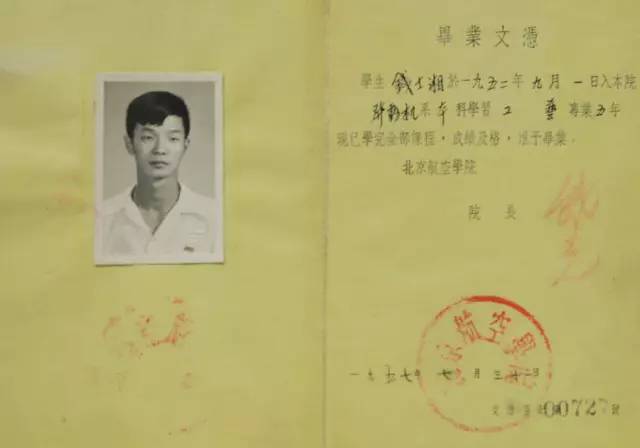 畢業文憑
學生 錢士湘於一九五二年九月一日入本院
發動机系本科學習工藝專業五年
現已學完全部課程，成績及格，准予畢業。
北京航空學院
院長
北京航空學院
一九五七年七月三十一日
00727號